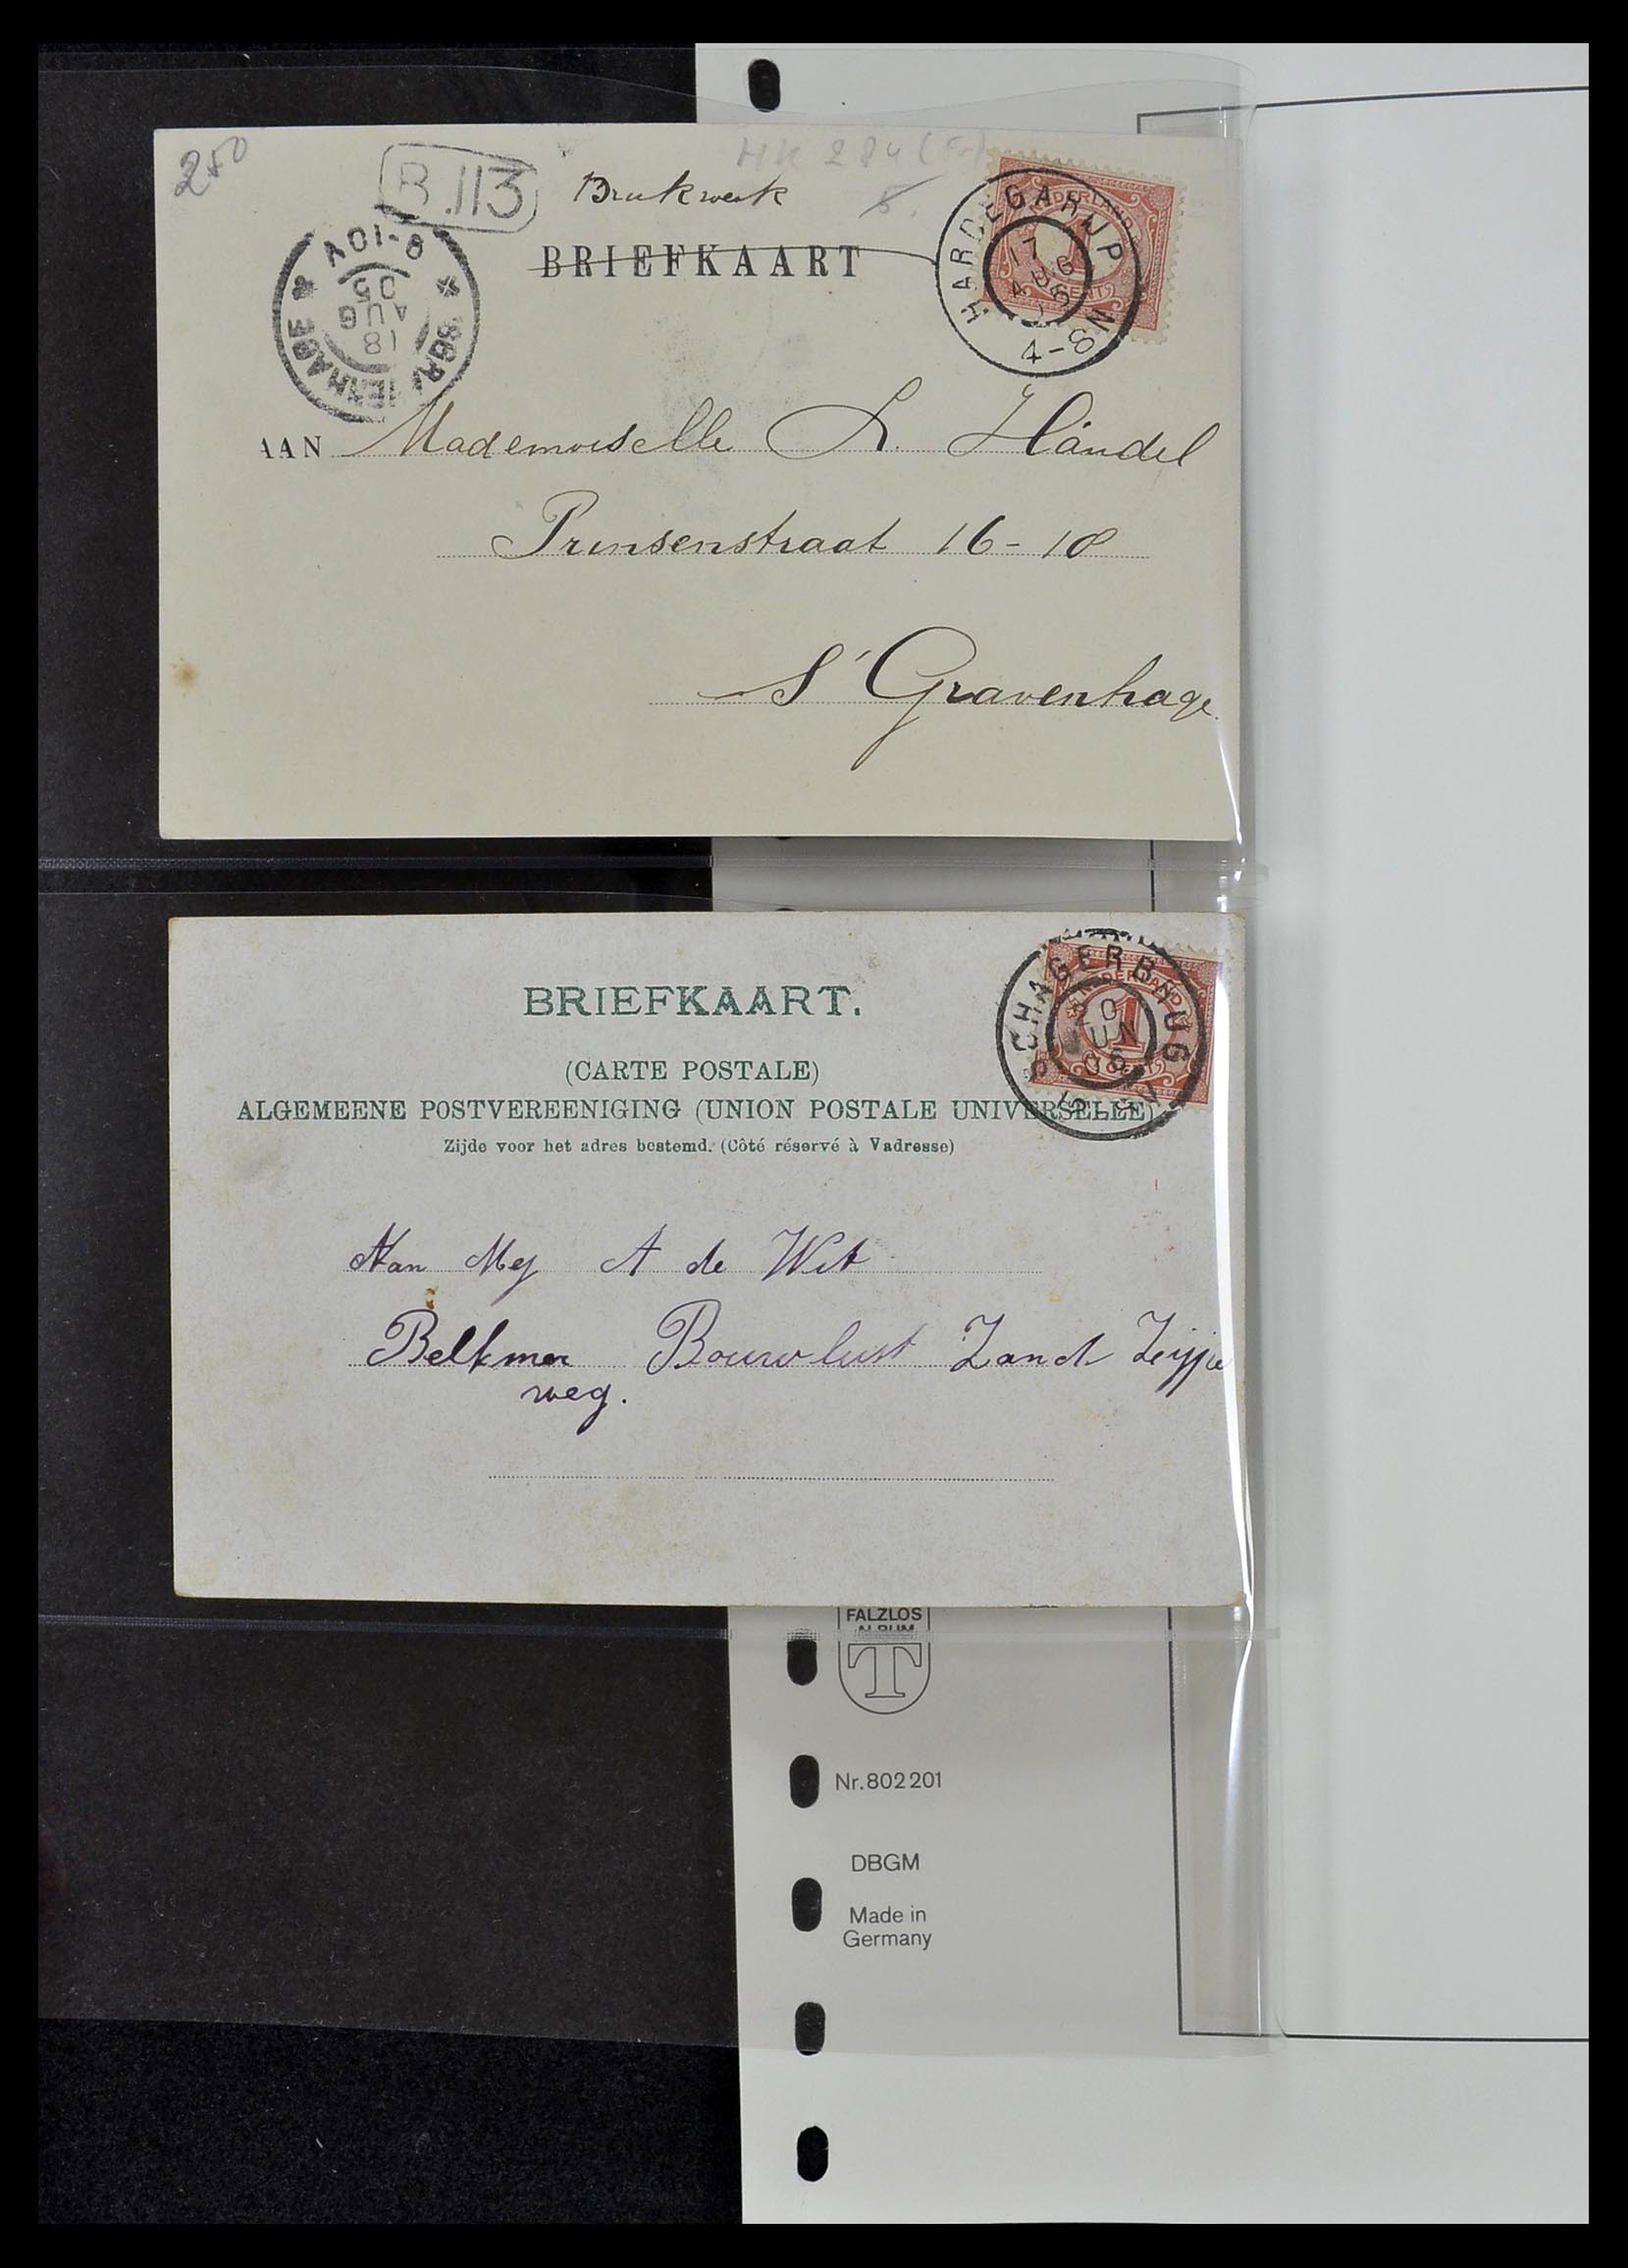 250
HK 284 (Fr)
B.113
Drukwerk
5.
BRIEFKAART
NEDERLAND
1
CENT
HARDEGARIJP
17
AUG
05
4-8N
'SGRAVENHAGE
18
AUG
05
8-10V
AAN Mademoiselle L. Händel
Prinsenstraat 16-18
S'Gravenhage.
BRIEFKAART.
(CARTE POSTALE)
ALGEMEENE POSTVEREENIGING (UNION POSTALE UNIVERSELLE)
Zijde voor het adres bestemd. (Côté réservé à Vadresse)
NEDERLAND
1
CENT
SCHAGERBRUG
20
JUN
05
Aan Mej A de Wit
Belkmer Bouwlust Zand Zeijpe
weg.
FALZLOS
ALBUM
T
Nr.802201
DBGM
Made in
Germany